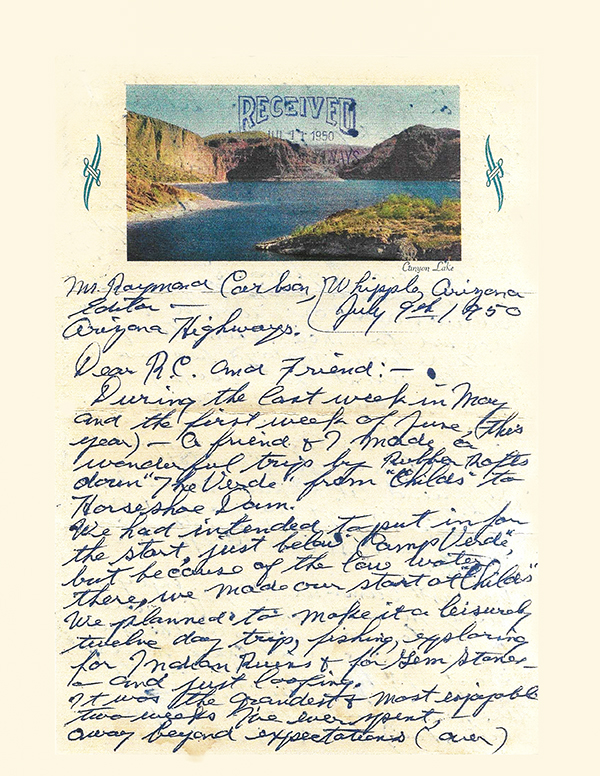 RECEIVED
JUL 11 1950
WAYS
Canyon Lake
Mr. Raymond Carlson, Whipple, Arizona
Editor — July 9th, 1950
Arizona Highways.
Dear R.C. and Friend: —
During the last week in May
and the first week of June, (this
year) — a friend & I made a
wonderful trip by rubber rafts
down "The Verde" from "Childs" to
Horseshoe Dam.
We had intended to put in for
the start, just below "Camp Verde",
but because of the low water
there, we made our start at "Childs"
We planned to make it a leisurely
twelve day trip, fishing, exploring
for Indian Ruins & for Gem Stones —
and just loafing.
It was the grandest & most enjoyable
two weeks I've ever spent,
away beyond expectations (over)